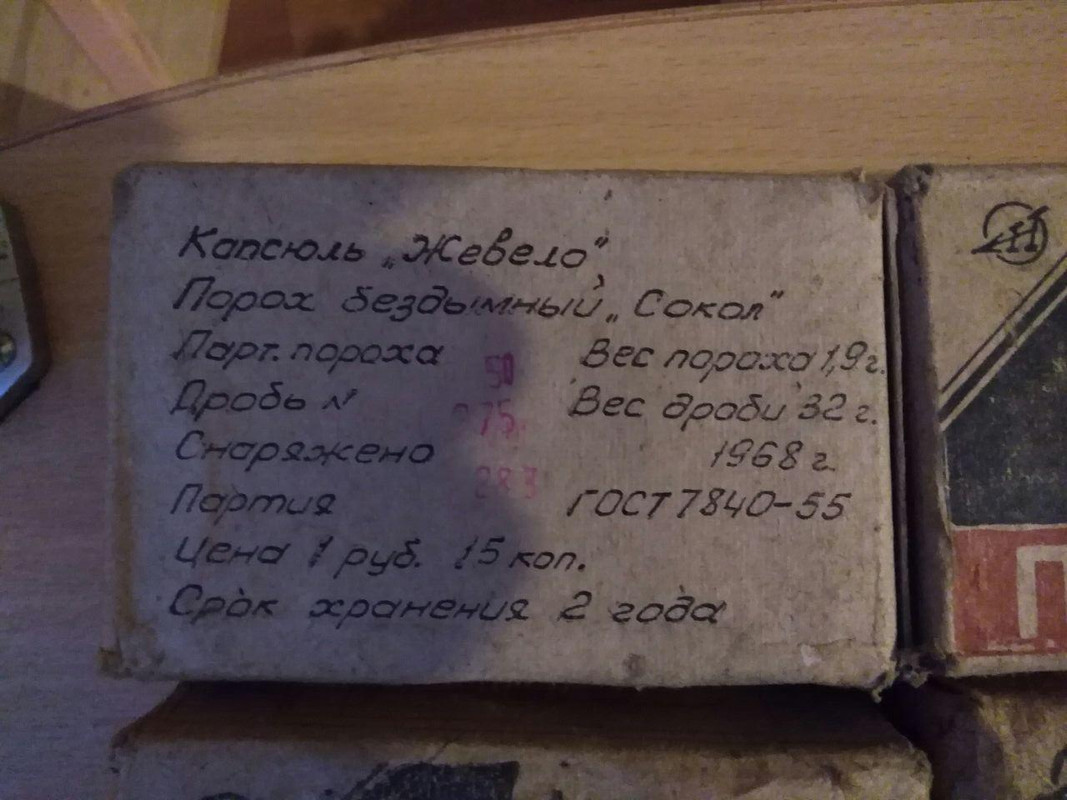 Капсюль „Жевело"
Порох бездымный „Сокол"
Парт. пороха 50 Вес пороха 1,9 г.
Дробь № 75. Вес дроби 32 г.
Снаряжено 1968 г.
Партия 283 ГОСТ 7840-55
Цена 1 руб. 15 коп.
Срок хранения 2 года
П